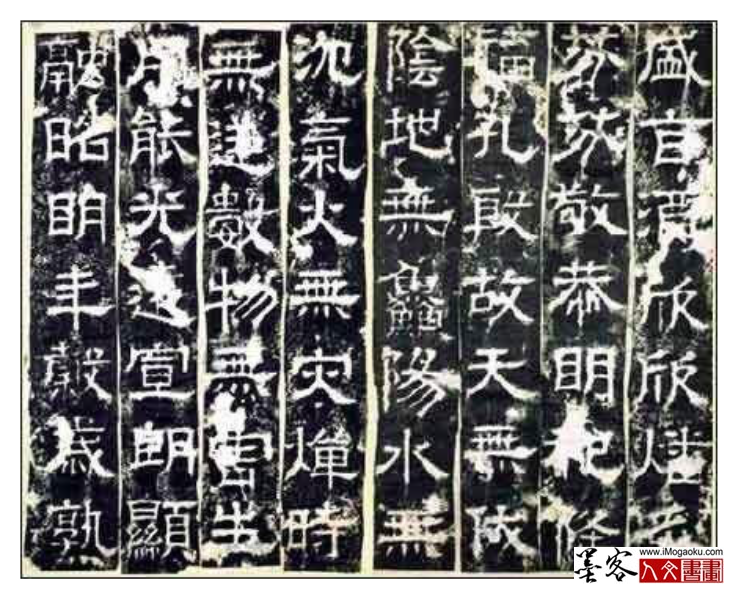 盛旨酒欣欣燔炙
芬芬敬恭明祀降
福孔殷故天無伏
陰地無鱻陽水無
沈氣火無灾燀時
無逆數物無害生
用能光遠宣朗顯
融昭明年穀歲孰
墨客
www.iMogaoku.com
人文書畫